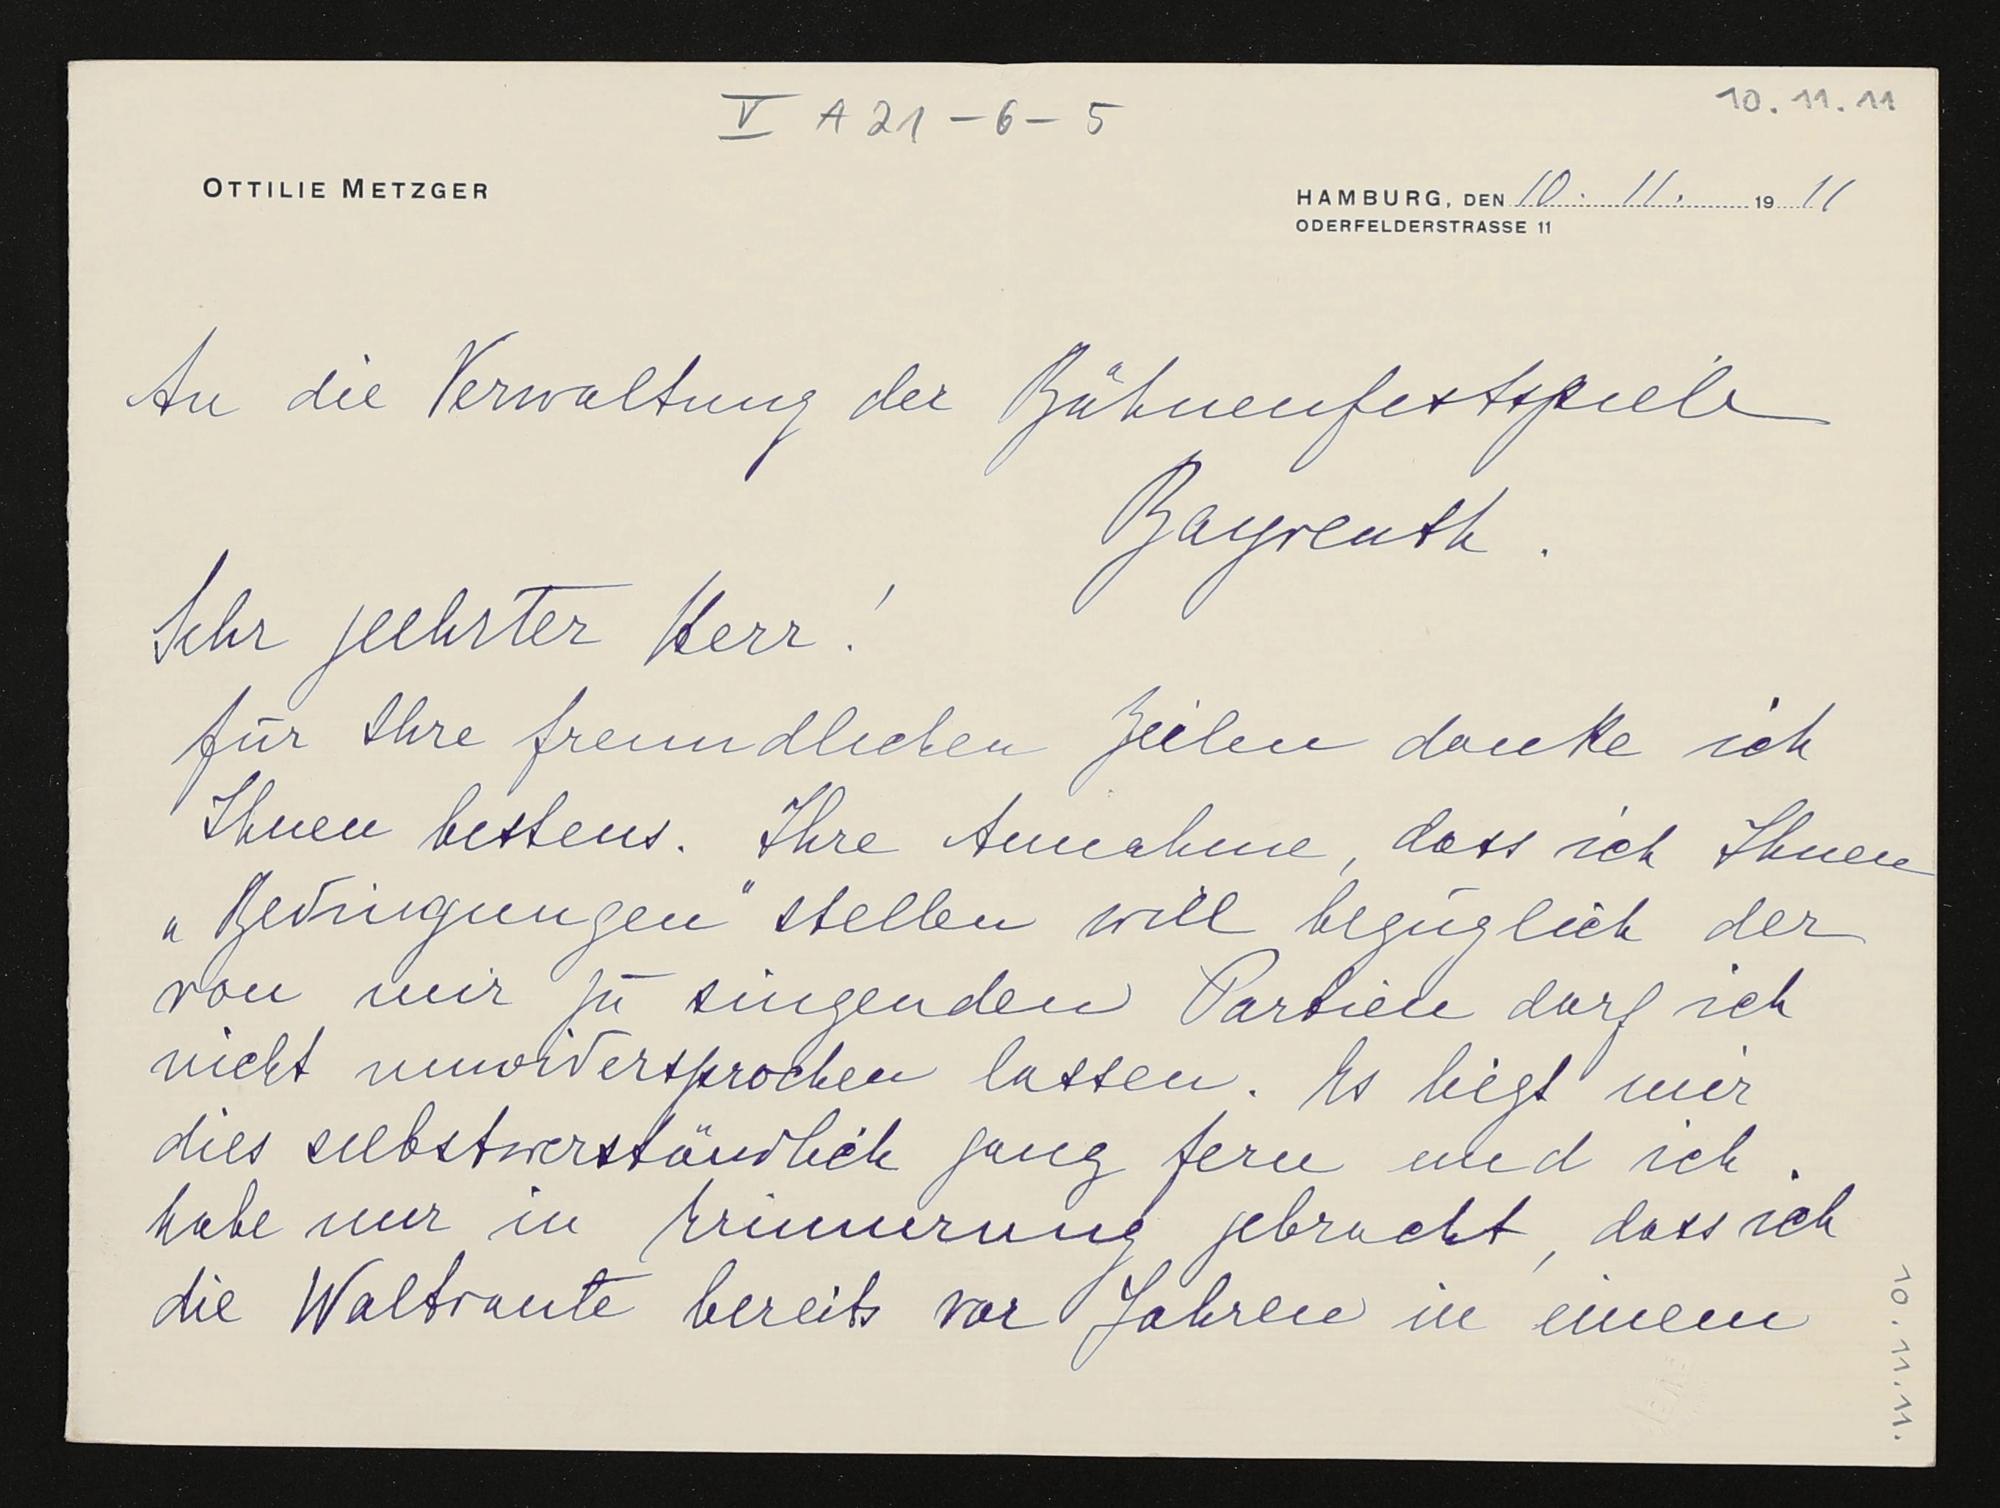 V A 21 - 6 - 5
10. 11. 11
OTTILIE METZGER
HAMBURG, DEN 10. 11. 1911
ODERFELDERSTRASSE 11
An die Verwaltung der Bühnenfestspiele
Bayreuth.
Sehr geehrter Herr!
für Ihre freundlichen Zeilen danke ich
Ihnen bestens. Ihre Annahme, dass ich Ihnen
„Bedingungen" stellen will bezüglich der
von mir zu singenden Partien darf ich
nicht unwidersprochen lassen. Es liegt mir
dies selbstverständlich ganz fern und ich
habe nur in Erinnerung gebracht, dass ich
die Waltraute bereits vor Jahren in einem
10. 11. 11.